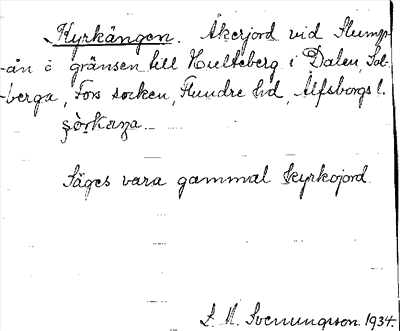 Kyrkängen. Åkerjord vid Slump-
-ån å gränsen till Hulteberg i Dalen, Sol-
-berga, Fors socken, Flundre hd, Älfsborgs l.
Säges vara gammal kyrkojord.
L. M. Svenungsson. 1934.